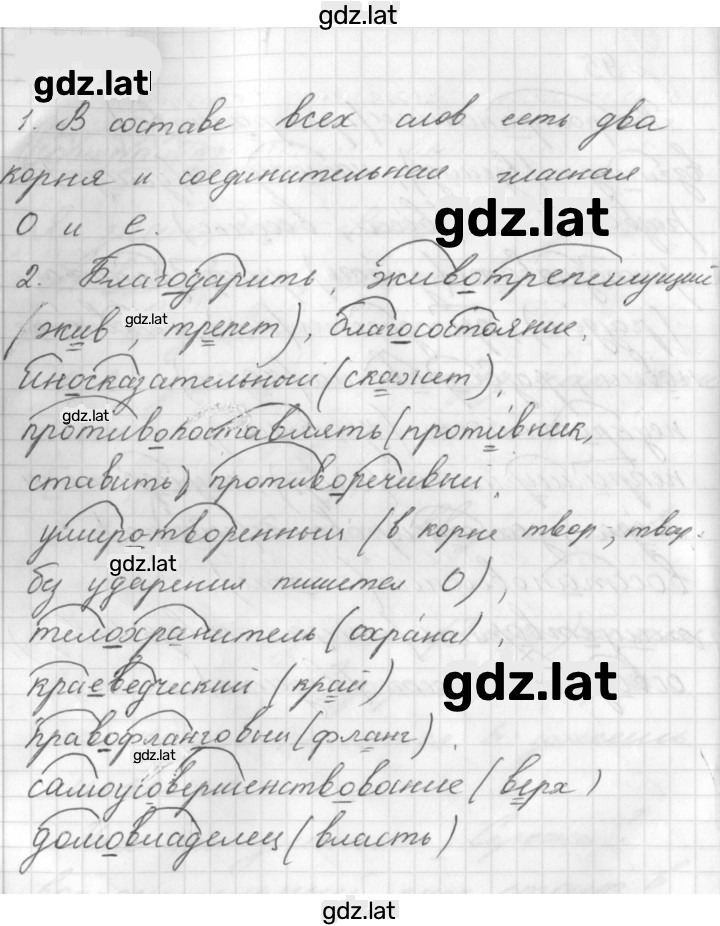 gdz.lat
gdz.lat
1. В составе всех слов есть два
корня и соединительная гласная
О и е.
gdz.lat
2. Благодарить, животрепещущий
(жив, трепет), благосостояние,
gdz.lat
Иносказательный (скажет),
gdz.lat
противопоставлять (противник,
ставить), противоречивый,
умиротворенный (в корне твор-, твар-
gdz.lat
бу ударения пишется О),
телохранитель (охра́на),
краеведческий (край)
gdz.lat
правофланговый (фланг),
gdz.lat
самоусовершенствование (верх)
домовладелец (власть)
gdz.lat